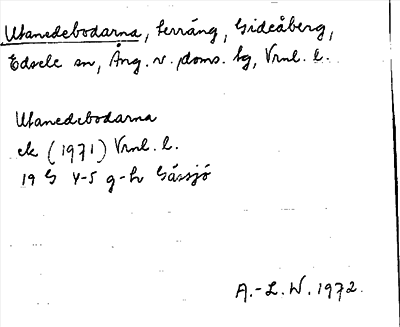 Utanedebodarna, terräng, Gideåberg,
Edsele sn, Ång. v. doms. tg, Vrnl. l.
Utanedebodarna
ek (1971) Vrnl. l.
19 G 4-5 g-h Gåssjö
A.-L. W. 1972.